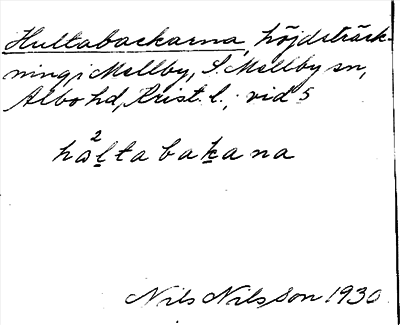 Hultabackarna, höjdsträck-
ning i Mellby, S. Mellby sn,
Albo hd, Krist. l., vid 5
2
hɷḷtabaḵana
Nils Nilsson 1930